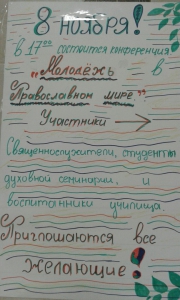 8 ноября!
В 17⁰⁰ состоится конференция
"Молодёжь в
Православном мире"
Участники →
Священнослужители, студенты
духовной семинарии, и
воспитанники училища.
Приглошаются все
желающие!